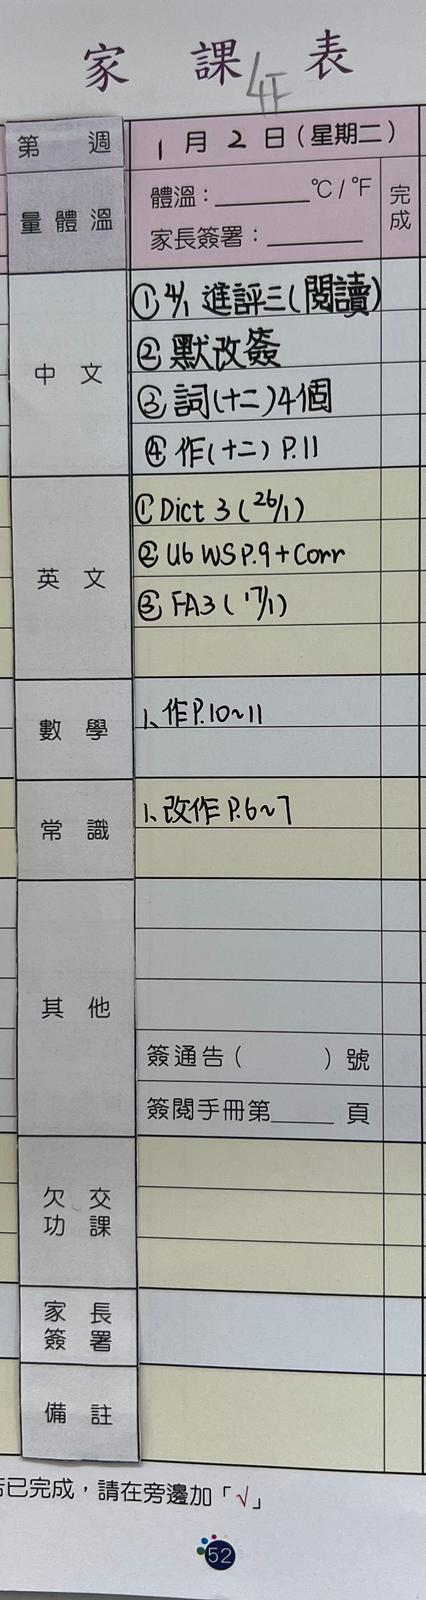 家 課 表
4F
第 週
1 月 2 日 (星期二)
量體溫
體溫：______°C / °F
家長簽署：______
完成
中 文
① 4/1 進評三(閱讀)
② 默改簽
③ 詞(十二)4個
④ 作(十二) P.11
英 文
① Dict 3 (26/1)
② U6 WS P.9 + Corr
③ FA3 (17/1)
數 學
1、作P.10~11
常 識
1、改作 P.6~7
其 他
簽通告 ( ) 號
簽閱手冊第____頁
欠 交
功 課
家 長
簽 署
備 註
已完成，請在旁邊加「√」
52